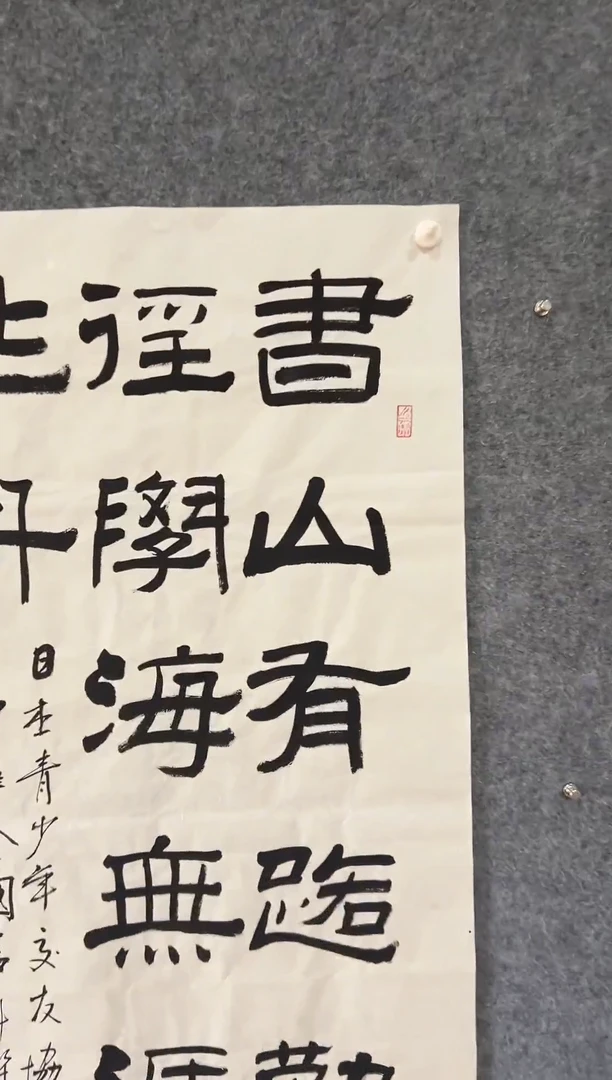 書山有路勤
徑學海無涯
作舟
日本青少年交友協